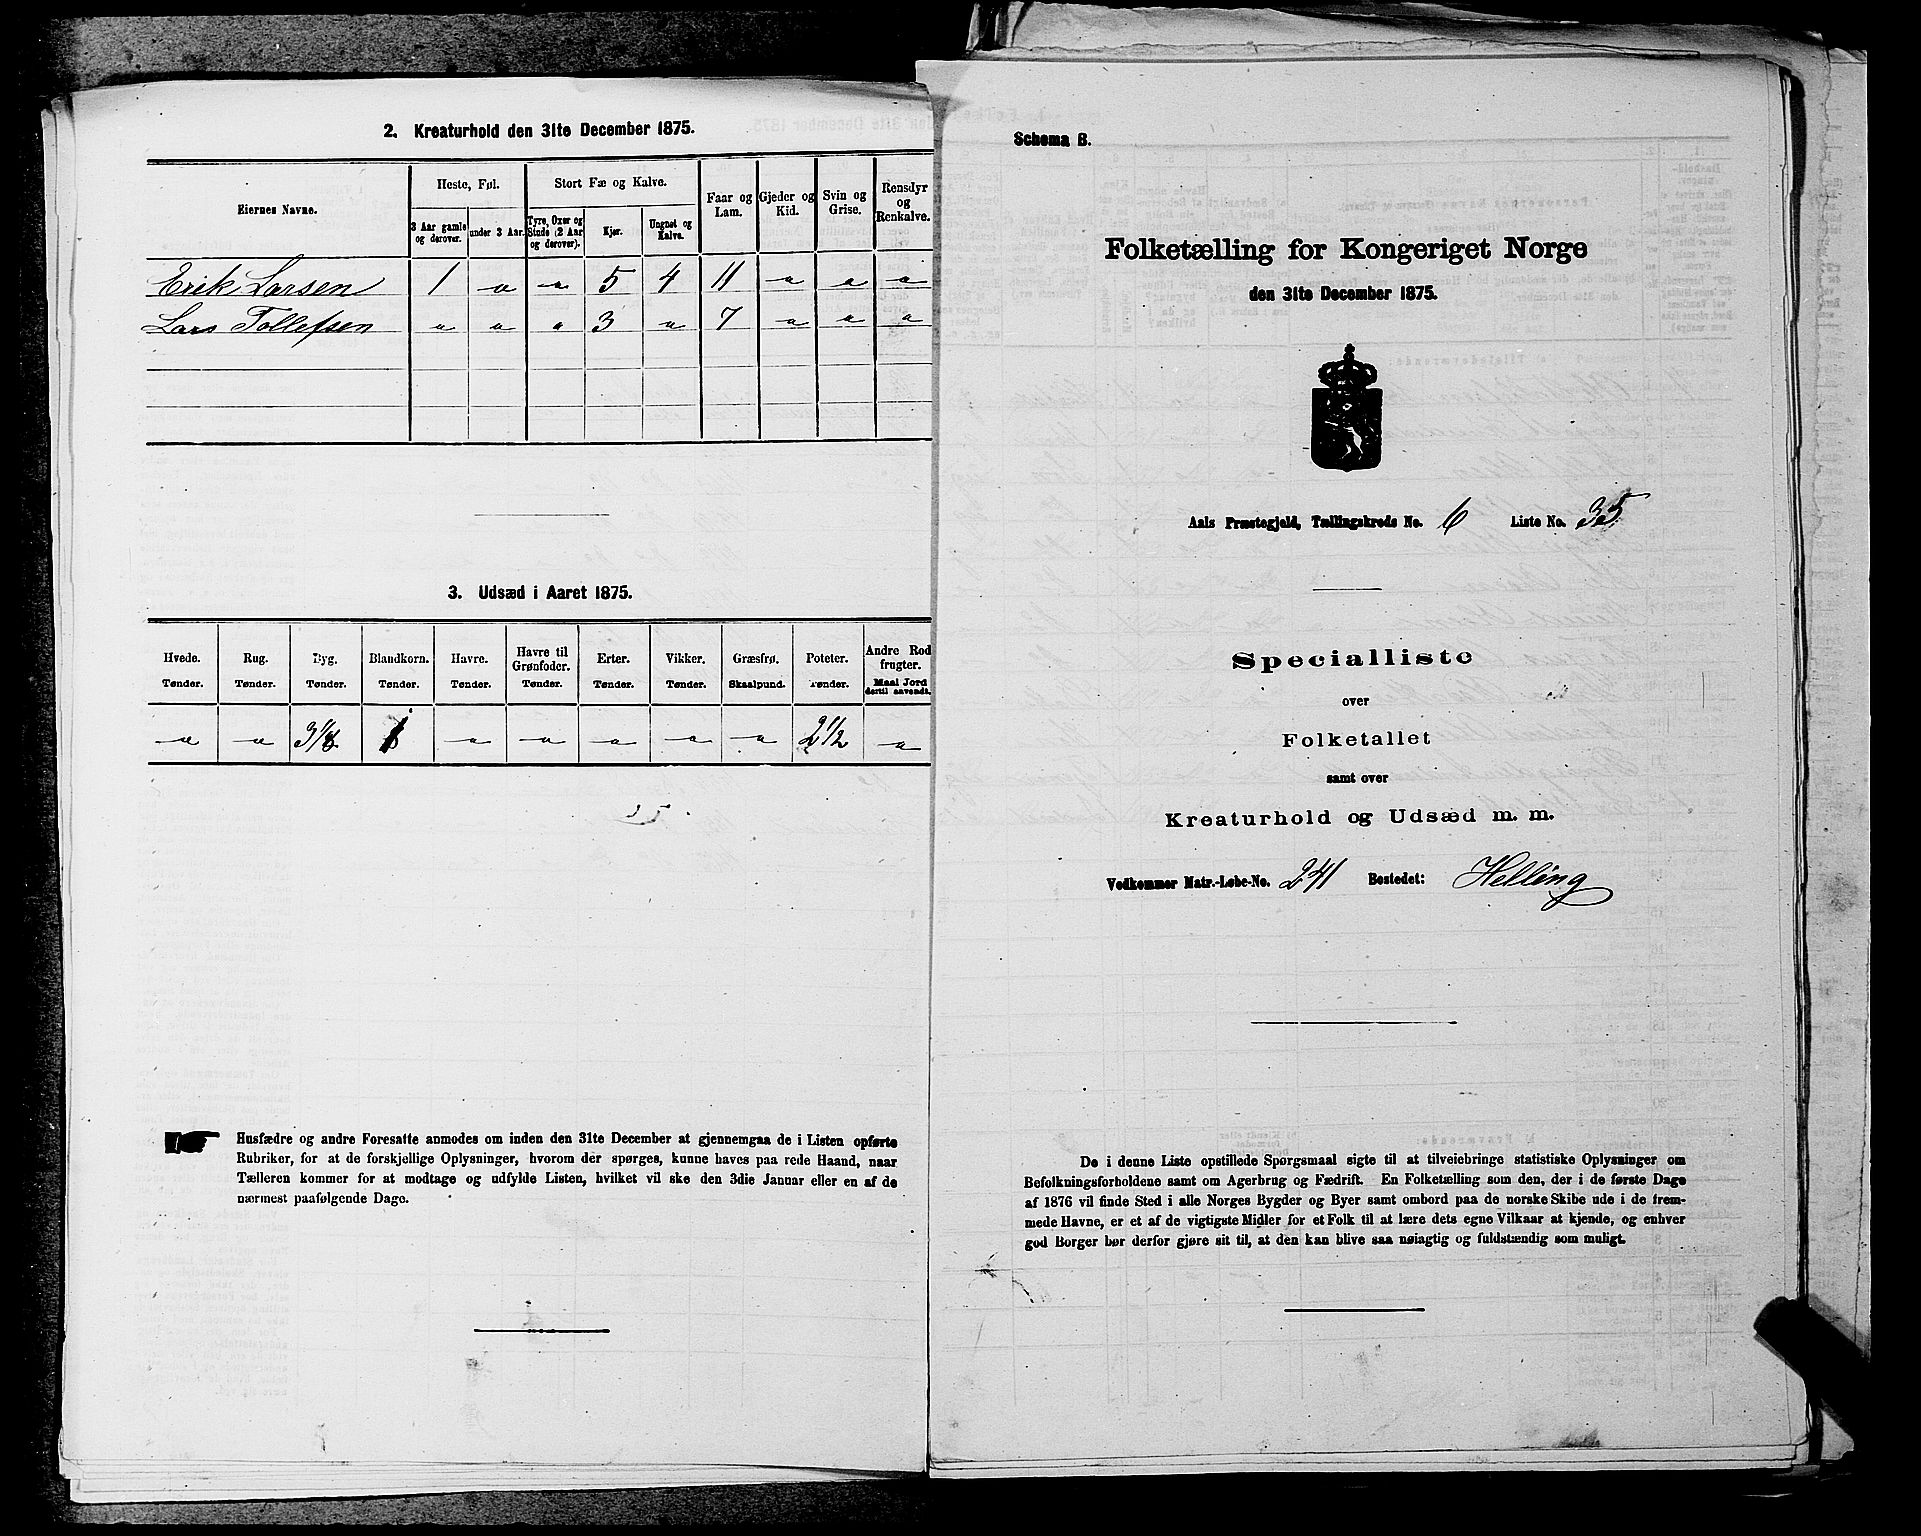 2. Kreaturhold den 31te December 1875.
Eiernes Navne. Heste, Føl. Stort Fæ og Kalve. Faar og Lam. Gjeder og Kid. Svin og Grise. Rensdyr og Renkalve.
3 Aar gamle og derover. under 3 Aar. Tyre, Oxer og Stude (2 Aar og derover). Kjør. Ungnøt og Kalve.
Erik Larsen 1 " " 5 4 11 " " "
Lars Tollefsen " " " 3 " 7 " " "
3. Udsæd i Aaret 1875.
Hvede. Rug. Byg. Blandkorn. Havre. Havre til Grønfoder. Erter. Vikker. Græsfrø. Poteter. Andre Rodfrugter.
Tønder. Tønder. Tønder. Tønder. Tønder. Tønder. Tønder. Tønder. Skaalpund. Tønder. Maal Jord dertil anvendt.
" " 3 1/8 " " " " " 2 1/2 "
Husfædre og andre Foresatte anmodes om inden den 31te December at gjennemgaa de i Listen opførte
Rubriker, for at de forskjellige Oplysninger, hvorom der spørges, kunne haves paa rede Haand, naar
Tælleren kommer for at modtage og udfylde Listen, hvilket vil ske den 3die Januar eller en af de
nærmest paafølgende Dage.
Schema B.
Folketælling for Kongeriget Norge
den 31te December 1875.
Aals Præstegjeld, Tællingskreds No. 6 Liste No. 35
Specialliste
over
Folketallet
samt over
Kreaturhold og Udsæd m. m.
Vedkommer Matr.-Løbe-No. 241 Bostedet: Helling
De i denne Liste opstillede Spørgsmaal sigte til at tilveiebringe statistiske Oplysninger om
Befolkningsforholdene samt om Agerbrug og Fædrift. En Folketælling som den, der i de første Dage
af 1876 vil finde Sted i alle Norges Bygder og Byer samt ombord paa de norske Skibe ude i de frem-
mede Havne, er et af de vigtigste Midler for et Folk til at lære dets egne Vilkaar at kjende, og enhver
god Borger bør derfor gjøre sit til, at den kan blive saa nøiagtig og fuldstændig som muligt.